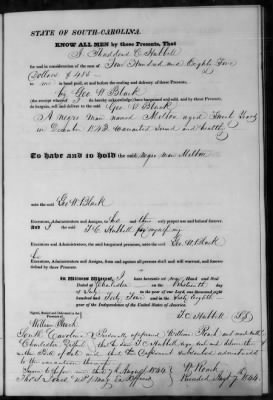 STATE OF SOUTH-CAROLINA.
KNOW ALL MEN by these Presents, That
I Thaddeus C Hubbell
for and in consideration of the sum of Four Hundred and Eighty Five
Dollars $ 485 —
to me in hand paid, at and before the sealing and delivery of these Presents,
by Geo W Black
(the receipt whereof I do hereby acknowledge) have bargained and sold, and by these Presents,
do bargain, sell and deliver to the said Geo W Black
A Negro man named Melton aged
in December 1843 warranted sound and healthy
To have and to hold the said Negro Man Melton
unto the said Geo W Black
Executors, Administrators and Assigns, his and their only proper use and behoof forever.
And I the said T C Hubbell for myself my
Executors and Administrators, the said bargained premises, unto the said Geo W Black
his
Executors, Administrators and Assigns, from and against all persons shall and will warrant, and forever
defend by these Presents.
In Witness Whereof, I have hereunto set my Hand and Seal
Dated at Charleston on the
day of July in the year of our Lord, one thousand eight
hundred and Forty Four and in the Sixty Eighth
year of the Independence of the United States of America.
Signed, Sealed and Delivered
in the Presence of
T C Hubbell
William Roach
South Carolina Personally appeared William Roach and made oath
Charleston District that he saw T C Hubbell sign seal and deliver the
within Bill of Sale and that he
Sworn to before me this 7th August 1844 W Roach
Recorded August 7th 1844